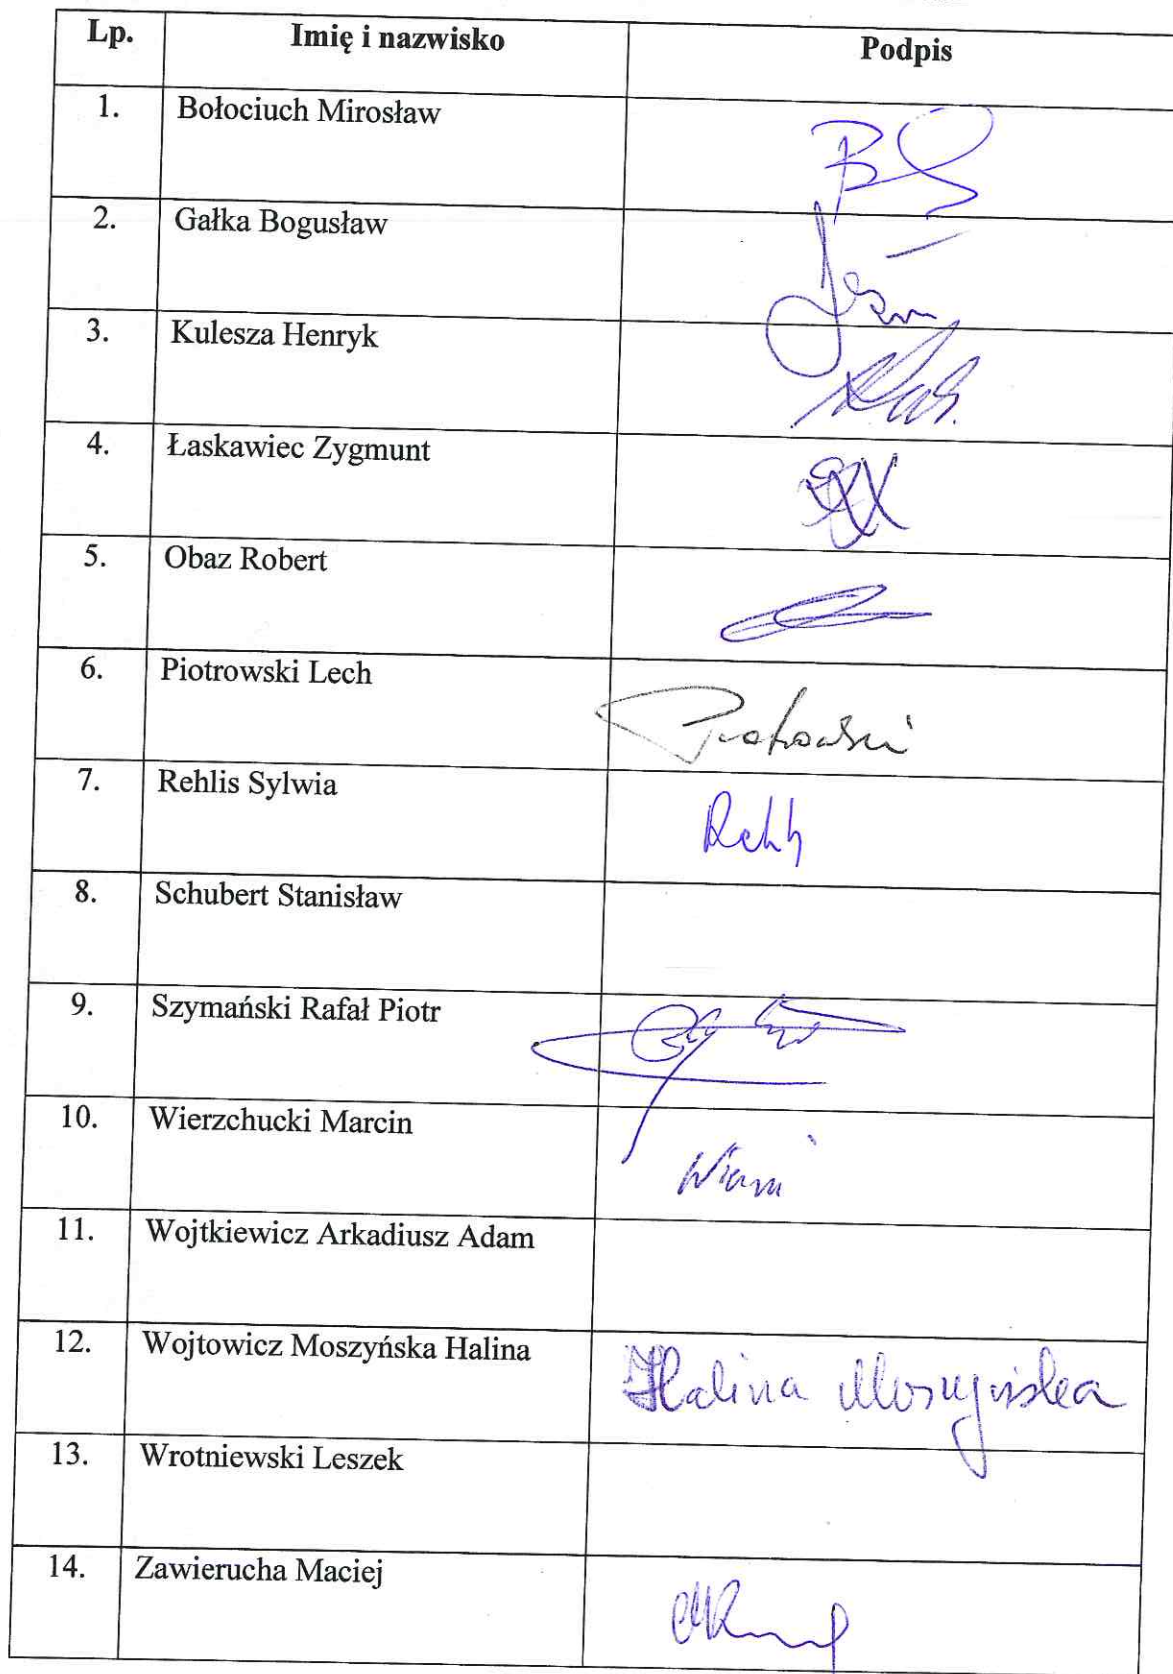 Lp. Imię i nazwisko Podpis
1. Bołociuch Mirosław
2. Gałka Bogusław
3. Kulesza Henryk
4. Łaskawiec Zygmunt
5. Obaz Robert
6. Piotrowski Lech Piotrowski
7. Rehlis Sylwia
8. Schubert Stanisław
9. Szymański Rafał Piotr
10. Wierzchucki Marcin
11. Wojtkiewicz Arkadiusz Adam
12. Wojtowicz Moszyńska Halina Halina Moszyńska
13. Wrotniewski Leszek
14. Zawierucha Maciej